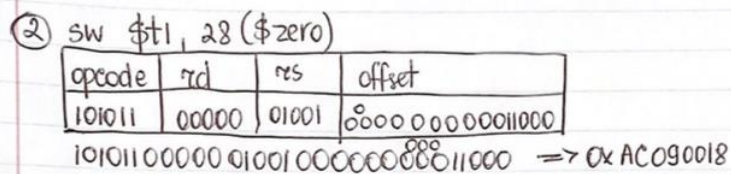 ② sw $t1, 28($zero)
opcode rd rs offset
101011 00000 01001 0000 0000 00011000
10101100000 01001 0000000000011000 => 0xAC090018